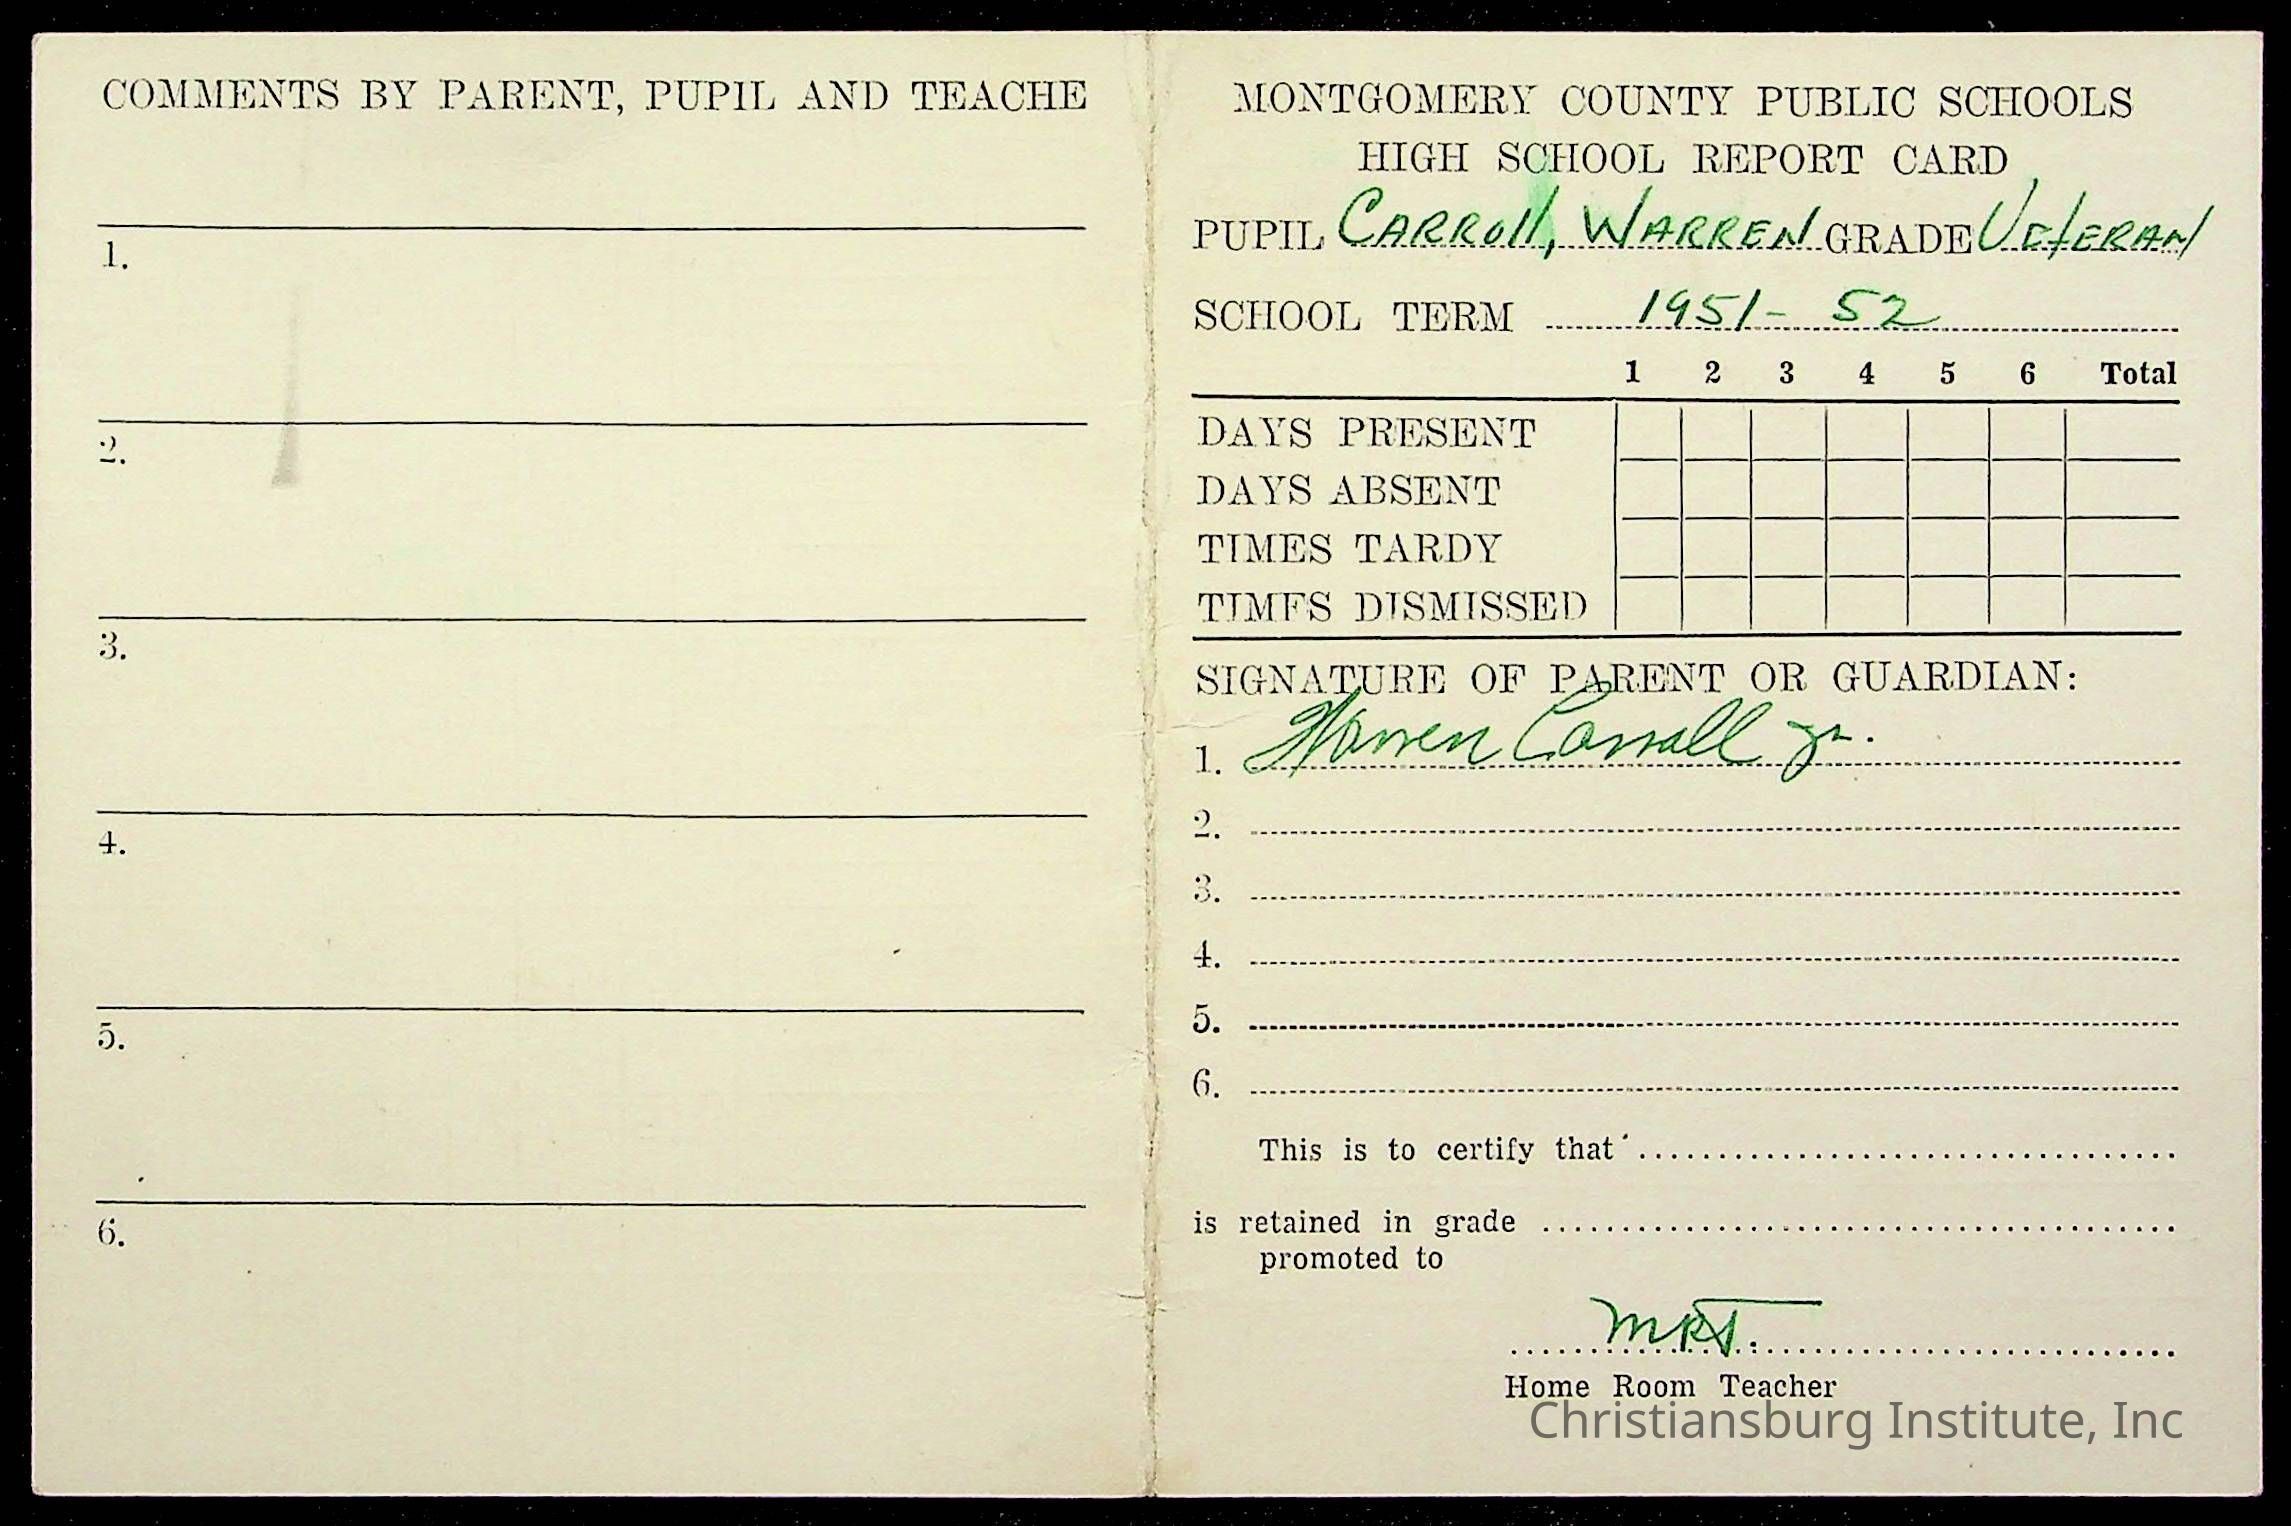 COMMENTS BY PARENT, PUPIL AND TEACHE
1.
2.
3.
4.
5.
6.
MONTGOMERY COUNTY PUBLIC SCHOOLS
HIGH SCHOOL REPORT CARD
PUPIL CARROll, WARREN GRADE VEtERAN
SCHOOL TERM 1951 - 52
1 2 3 4 5 6 Total
DAYS PRESENT
DAYS ABSENT
TIMES TARDY
TIMES DISMISSED
SIGNATURE OF PARENT OR GUARDIAN:
1. Warren Carroll Jr.
2.
3.
4.
5.
6.
This is to certify that
is retained in grade
promoted to
MRT.
Home Room Teacher
Christiansburg Institute, Inc